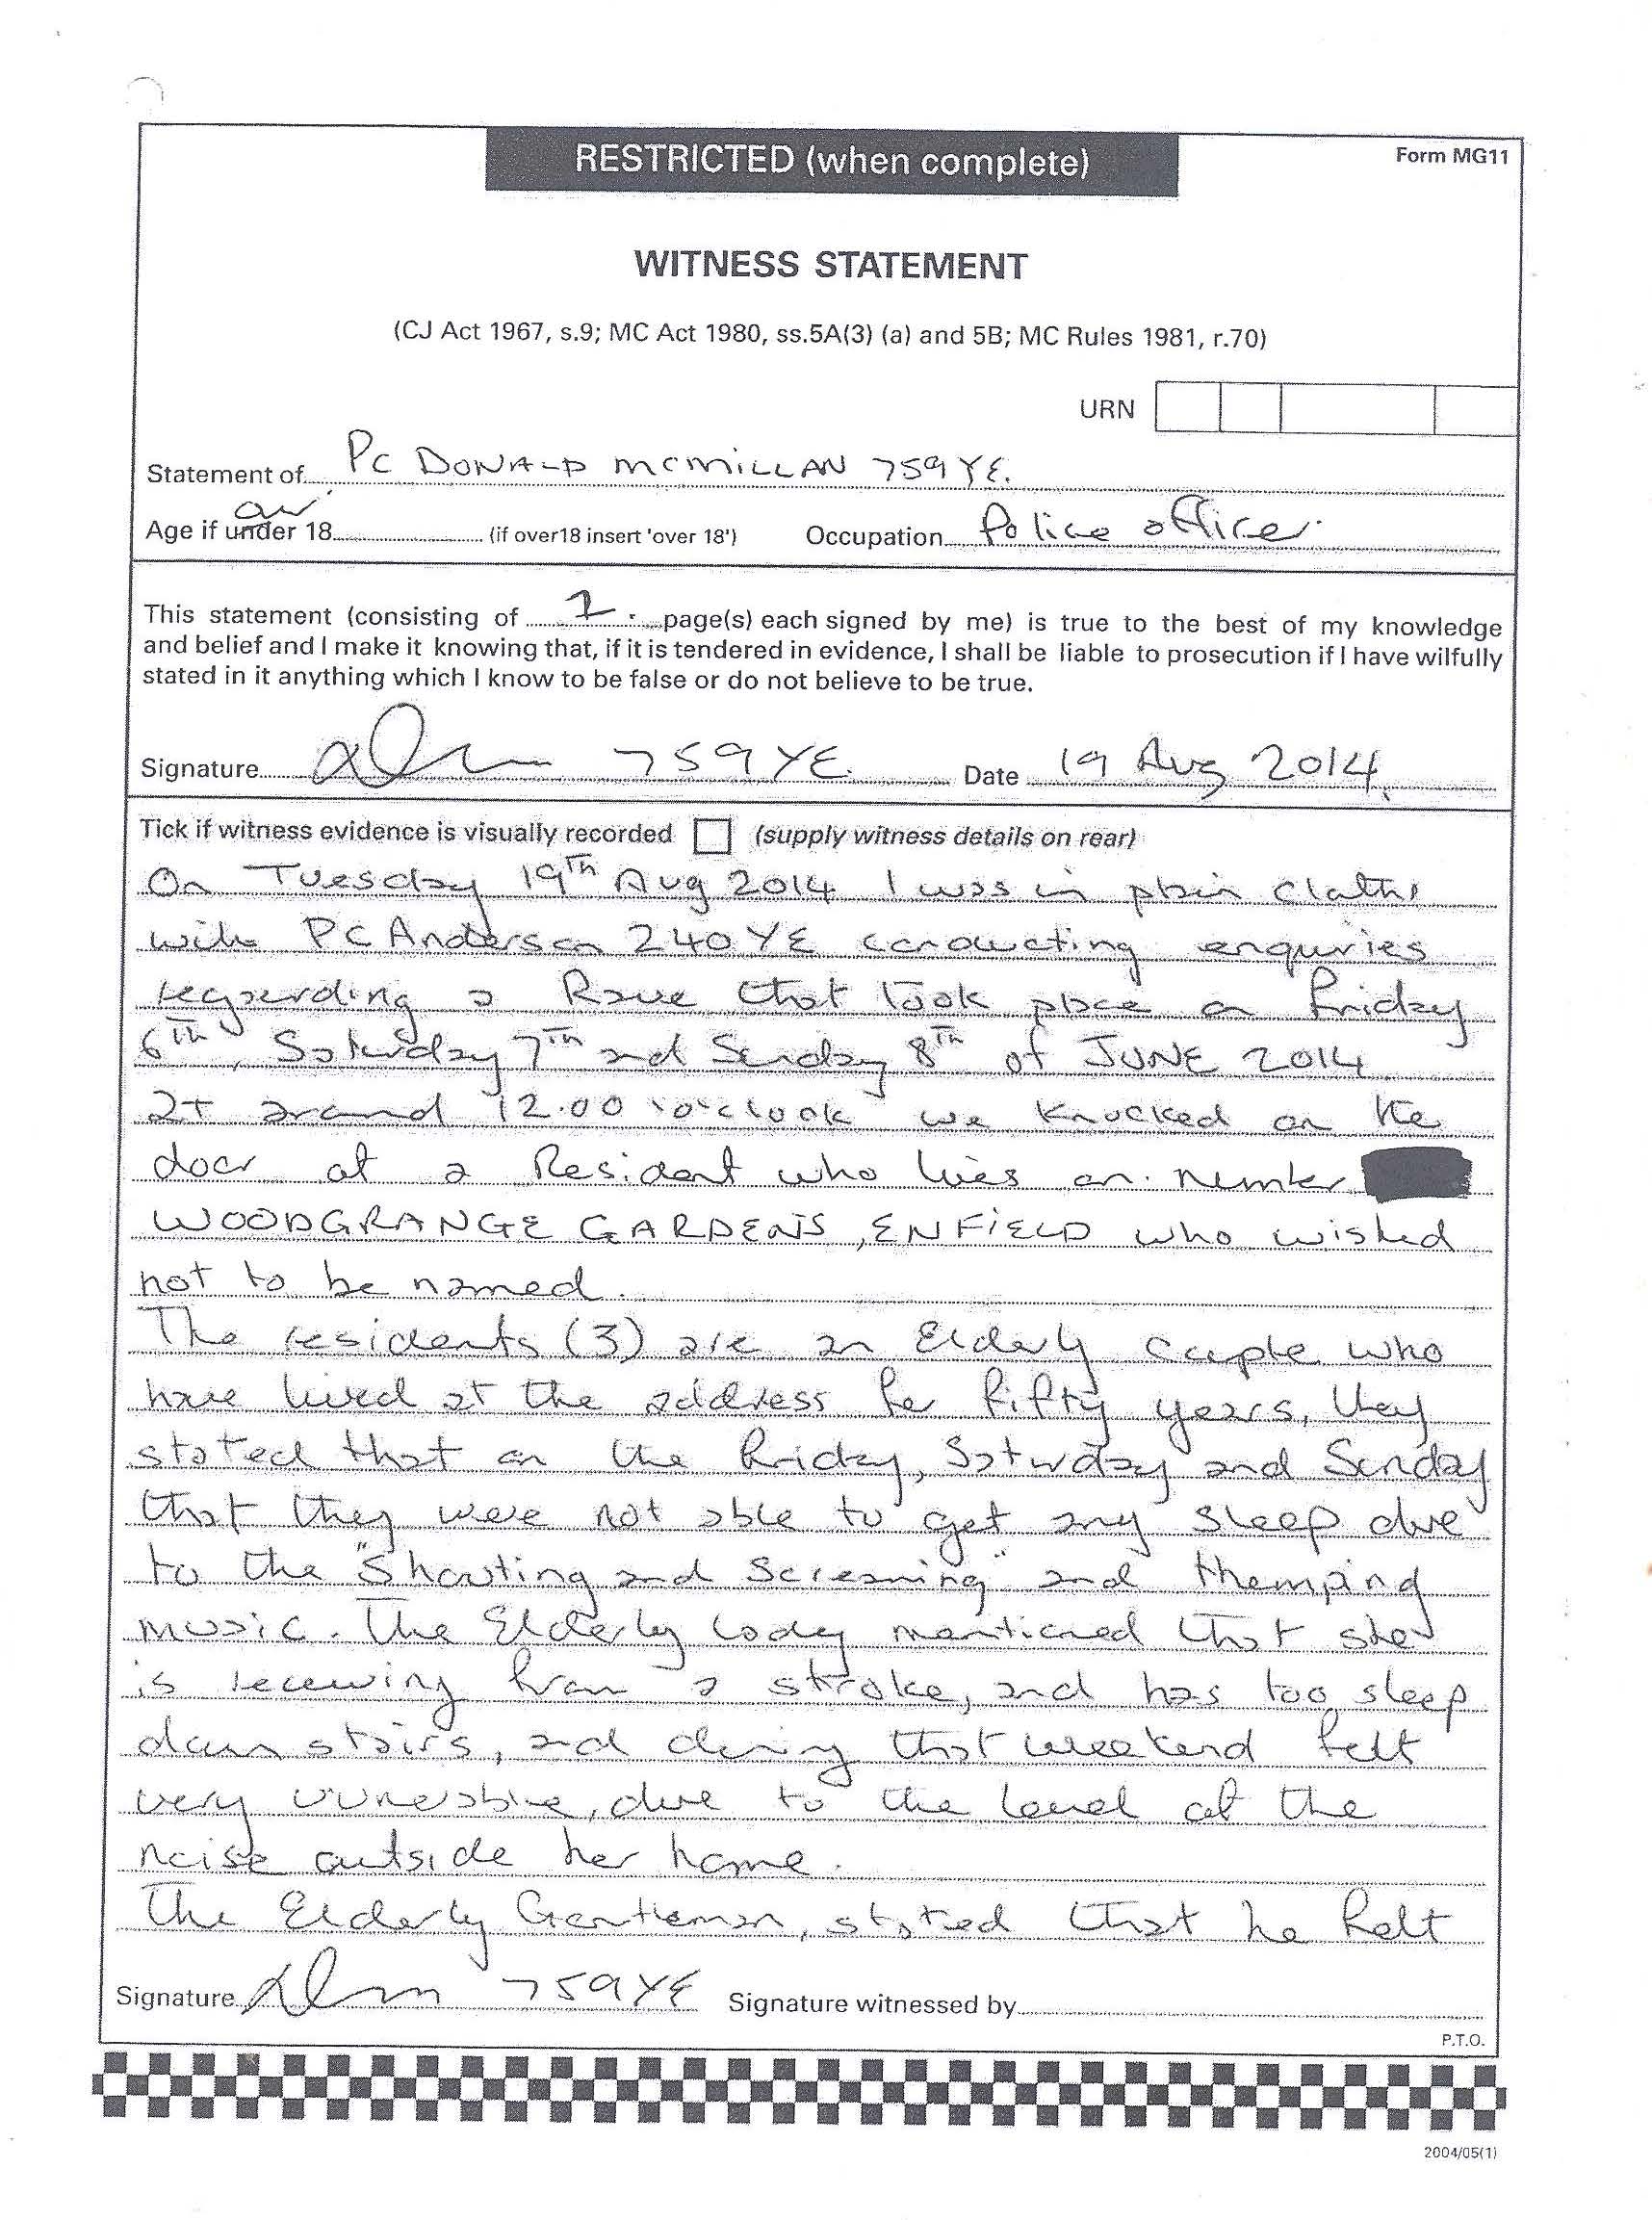 RESTRICTED (when complete)
Form MG11
WITNESS STATEMENT
(CJ Act 1967, s.9; MC Act 1980, ss.5A(3) (a) and 5B; MC Rules 1981, r.70)
URN
Statement of PC DONALD MCMILLAN 759YE.
Age if under 18 (if over18 insert 'over 18') Occupation Police officer.
This statement (consisting of page(s) each signed by me) is true to the best of my knowledge
and belief and I make it knowing that, if it is tendered in evidence, I shall be liable to prosecution if I have wilfully
stated in it anything which I know to be false or do not believe to be true.
Signature 759YE. Date 19 Aug 2014.
Tick if witness evidence is visually recorded (supply witness details on rear)
On Tuesday 19th Aug 2014 I was in plain
with PC Anderson 240YE enquries
regarding a Rave that took place on Friday
6th, Saturday 7th and Sunday 8th of JUNE 2014
at around 12.00 o'clock we knocked on the
door at a Resident who lives on number
WOODGRANGE GARDENS, ENFIELD who wished
not to be named.
The residents (3) are an Elderly couple who
have lived at the address for fifty years, they
stated that on the Friday, Saturday and Sunday
that they were not able to get any sleep due
to the "Shouting and Screaming" and
music. The Elderly lady mentioned that she
is from a stroke, and has too sleep
down stairs, and during that weekend felt
very due to the level of the
noise outside her home.
The Elderly Gentleman, stated that he felt
Signature 759YE Signature witnessed by
P.T.O.
2004/05(1)